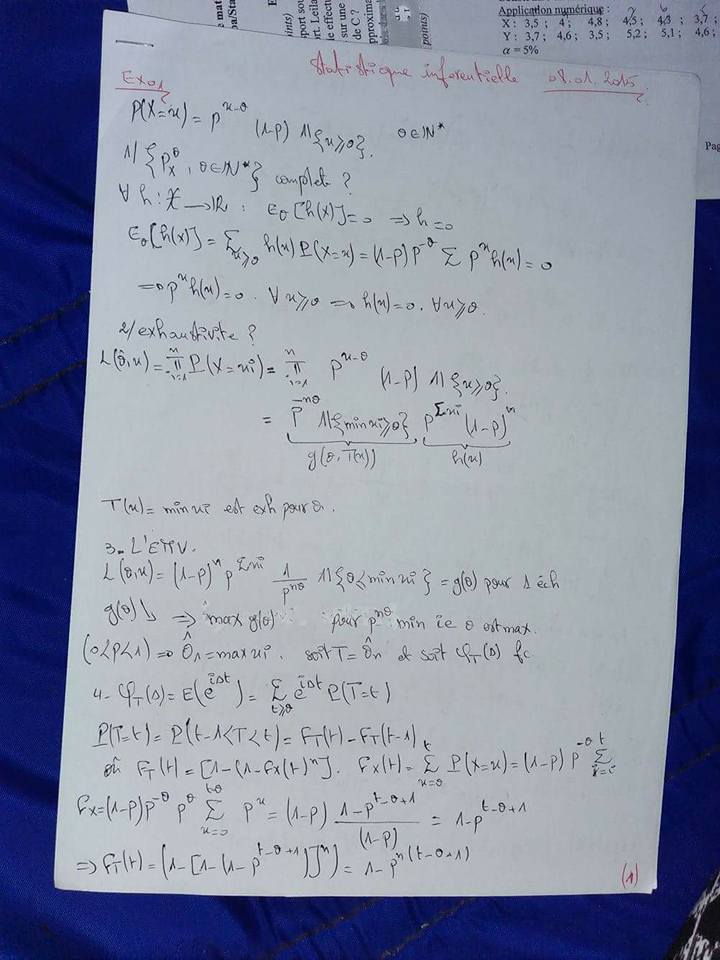 Application numérique :
X : 3,5 ; 4 ; 4,8 ; 4,5 ; 4,3 ; 3,7 ;
Y : 3,7 ; 4,6 ; 3,5 ; 5,2 ; 5,1 ; 4,6 ;
α = 5%
Pag
Statistique inferentielle 08.01.2015
Ex01
P(X=x) = p^{x-θ} (1-p) 1{x≥θ}. θ∈ℕ*
1/ {P_X^θ, θ∈ℕ*} complete ?
∀ h : X → ℝ : E_θ[h(X)]=0 ⇒ h=0
E_θ[h(X)] = Σ_{x≥θ} h(x) P(X=x) = (1-p) p^{-θ} Σ p^x h(x) = 0
⇒ p^x h(x) = 0. ∀x≥θ ⇒ h(x)=0. ∀x≥θ.
2/ exhaustivite ?
L(θ,x) = π_{i=1}^n P(X=xi) = π_{i=1}^n p^{x-θ} (1-p) 1{x≥θ}.
= p^{-nθ} 1{min xi≥θ} p^{Σxi} (1-p)^n
g(θ,T(x)) h(x)
T(x) = min xi est exh pour θ.
3. L'EMV.
L(θ,x) = (1-p)^n p^{Σxi} 1/p^{nθ} 1{θ≤min xi} = g(θ) pour 1 éch
g(θ)↘ ⇒ max g(θ) pour p^{nθ} min ie θ est max.
(0<p<1) ⇒ θ̂_n = max xi. soit T = θ̂_n et soit φ_T(s) fc
4- φ_T(s) = E(e^{ist}) = Σ_{t≥θ} e^{ist} P(T=t)
P(T=t) = P(t-1<T<t) = F_T(t) - F_T(t-1)
où F_T(t) = [1-(1-F_X(t)^n]. F_X(t) = Σ_{x=θ}^t P(X=x) = (1-p) p^{-θ} Σ^t
F_X = (1-p)p^{-θ} p^θ Σ_{x=0}^{t-θ} p^x = (1-p) (1-p^{t-θ+1})/(1-p) = 1-p^{t-θ+1}
⇒ F_T(t) = (1-[1-(1-p^{t-θ+1})]^n) = 1-p^{n(t-θ+1)}
(1)